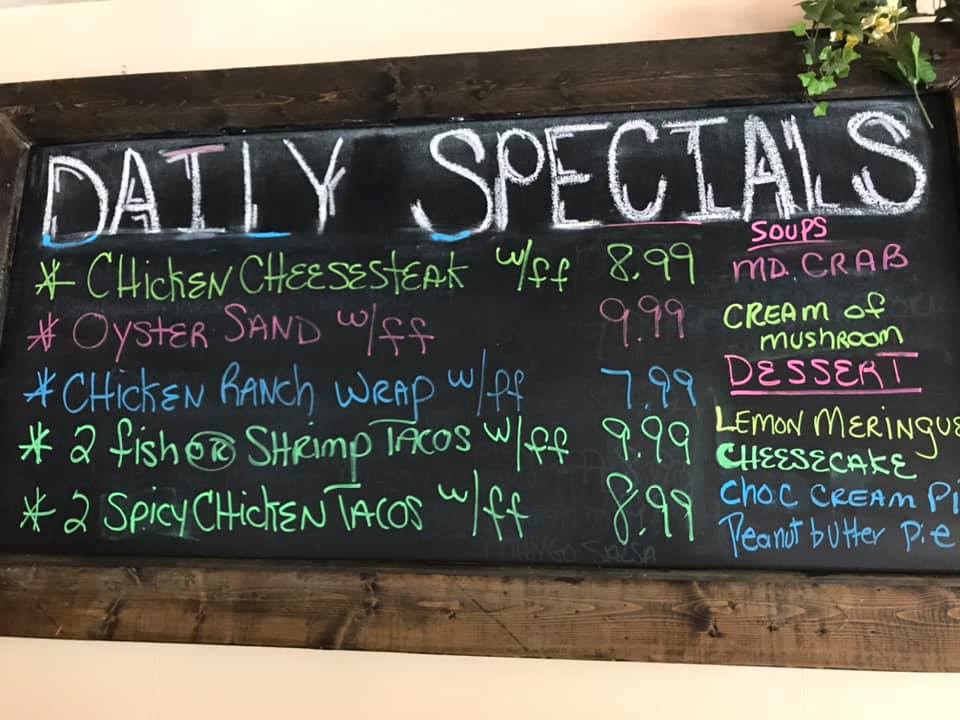 DAILY SPECIALS
* CHICKEN CHEESESTEAK w/ff 8.99
* OYSTER SAND w/ff 9.99
* CHICKEN RANCH WRAP w/ff 7.99
* 2 fish OR SHRIMP TACOS w/ff 9.99
* 2 SPICY CHICKEN TACOS w/ff 8.99
SOUPS
MD. CRAB
CREAM of
MUSHROOM
DESSERT
LEMON MERINGUE
CHEESECAKE
CHOC CREAM Pi
Peanut butter Pie
MANGO SALSA